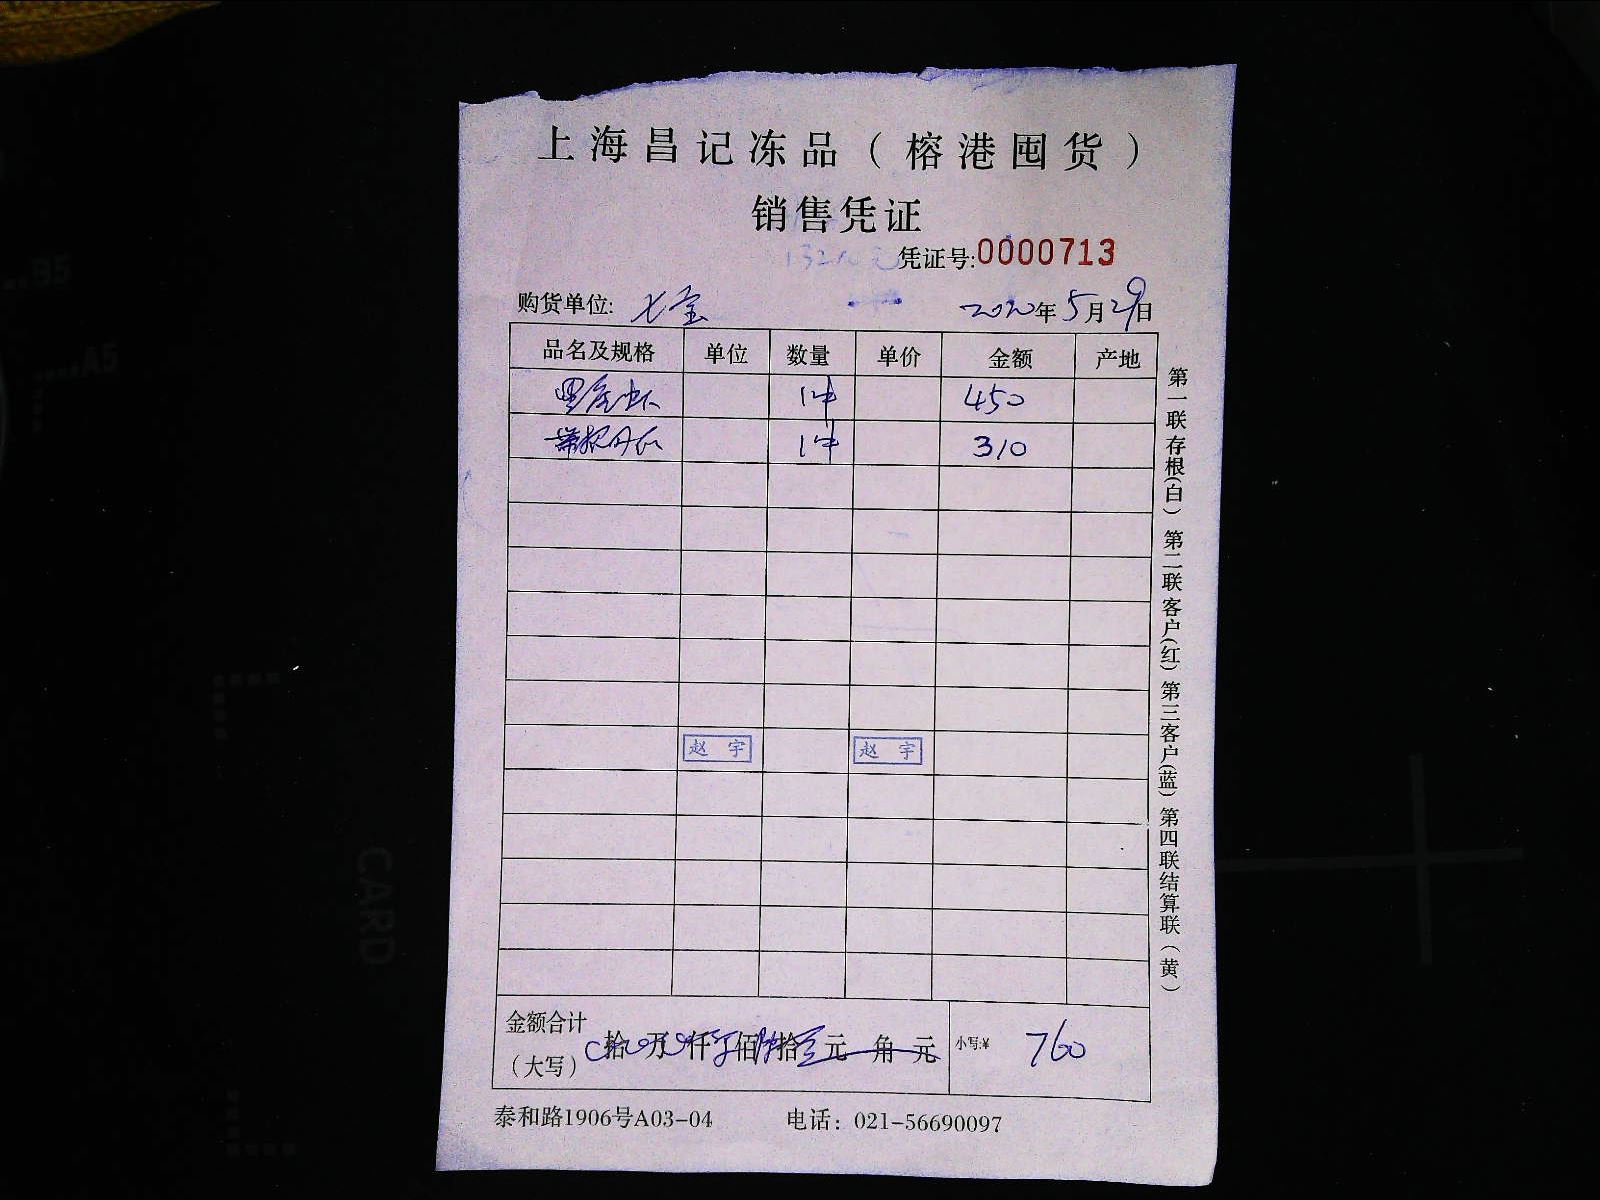 上海昌记冻品（榕港囤货）
销售凭证
凭证号:0000713
购货单位: 七宝 2020年5月29日
品名及规格 单位 数量 单价 金额 产地
1件 450
1件 310
赵宇 赵宇
金额合计（大写） 拾 万 仟 佰 拾 元 角 元 小写:¥ 760
泰和路1906号A03-04 电话：021-56690097
第一联存根(白) 第二联客户(红) 第三客户(蓝) 第四联结算联（黄）
B5
A5
CARD